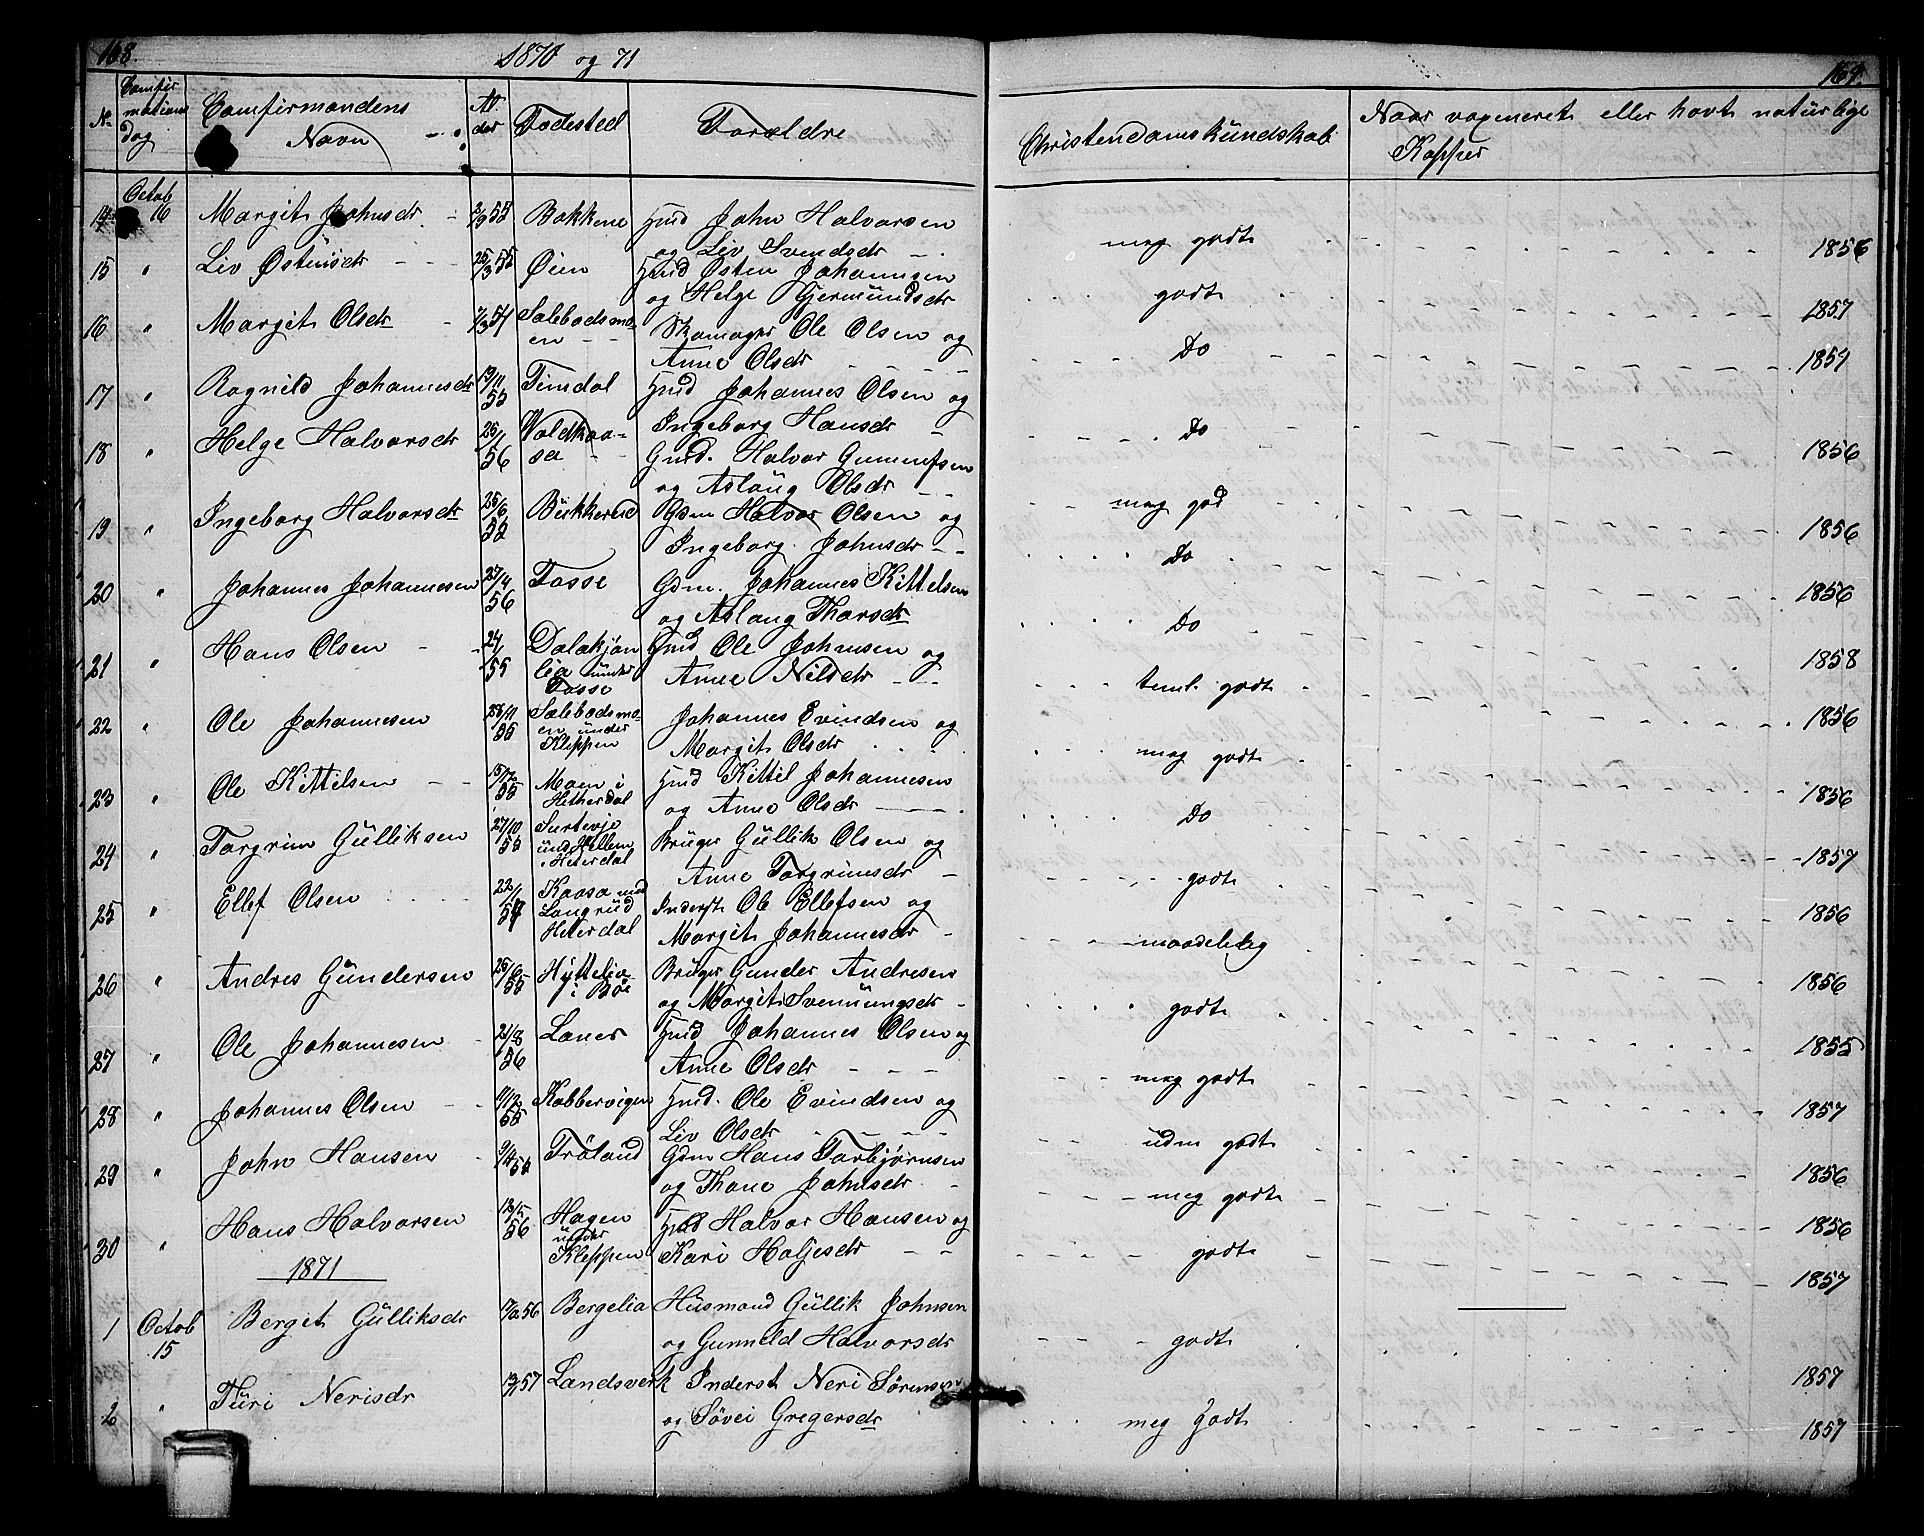 168. 1870 og 71 169.
No Comfirmations dag Comfirmandens Navn Alder Födested Forældre Christendomskündskab Naar vaxeneret eller havt natürlige Kopper
Octob
14 16 Margit Johnsdr Bakkene Hmd John Halvorsen
og Liv Svendsdr meg godt 1856
15 " Liv Østensdr 25/3 55 Øien Hmd Østen Johannesen
og Helge Gjermündsdr godt 1857
16 " Margit Olsdr Salebodsmo-
en Skomager Ole Olsen og
Anne Olsdr Do
17 " Ragnild Johannesdr 19/11 55 Tinsdal Hmd Johannes Olsen og
Ingeborg Hansdr Do 1856
18 " Helge Halvorsdr 26/1 56 Valdkaa-
sa Gmd. Halvor Gunnufsen
og Aslaüg Olsdr meg god 1856
19 " Ingeborg Halvorsdr Bükkerud Gdm Halvor Olsen og
Ingeborg Johnsdr Do 1856
20 " Johannes Johannesen 27/4 56 Fosse Gdm. Johannes Kittelsen
og Aslaug Thorsdr Do 1858
21 " Hans Olsen 24/1 55 Dalakjøn
lia ünder
Fosse Hmd Ole Johnsen og
Anne Nilsdr teml. godt 1856
22 " Ole Johannesen 28/11 55 Salebodsmo-
en under
Kleppen Johannes Evindsen og
Margit Olsdr meg godt 1856
23 " Ole Kittilsen 15/12 55 Moen i
Hitherdal Hmd Kittil Johannesen
og Anne Olsdr Do 1857
24 " Torgrim Gülliksen 27/10 55 Surtevje
und Hellem
i Hiterdal Brüger Güllik Olsen og
Anne Torgrimsdr godt 1856
25 " Ellef Olsen 22/1 Kaasa und
Langrüd
Hiterdal Inderst Ole Ellefsen og
Margit Johannesdr maadelig 1856
26 " Andres Gündersen 25/6 55 Hÿttelia
i Bøe Brüger Gunder Andresen
og Margit Svennüngsdr godt 1855
27 " Ole Johannesen 21/8 56 Laner Hmd Johannes Olsen og
Anne Olsdr meg godt 1857
28 " Johannes Olsen Kobbervigen Hmd. Ole Evindsen og
Liv Olsdr üdm godt 1856
29 " John Hansen Fröland Gdm Hans Torbjørnsen
og Thone Johnsdr meg godt 1856
30 " Hans Halvorsen 56 Hagen
ünder
Kleppen Hmd Halvor Hansen og
Kari Haljesdr godt 1857
1871
1 Octob
15 Berget Gülliksdr 56 Bergelia Hüsmand Güllik Johnsen
og Gunneld Halvorsdr godt 1857
2 " Türi Nerisdr 57 Landsverk Inderst Neri Sørensen
og Søvei Gregersdr meg Godt 1857